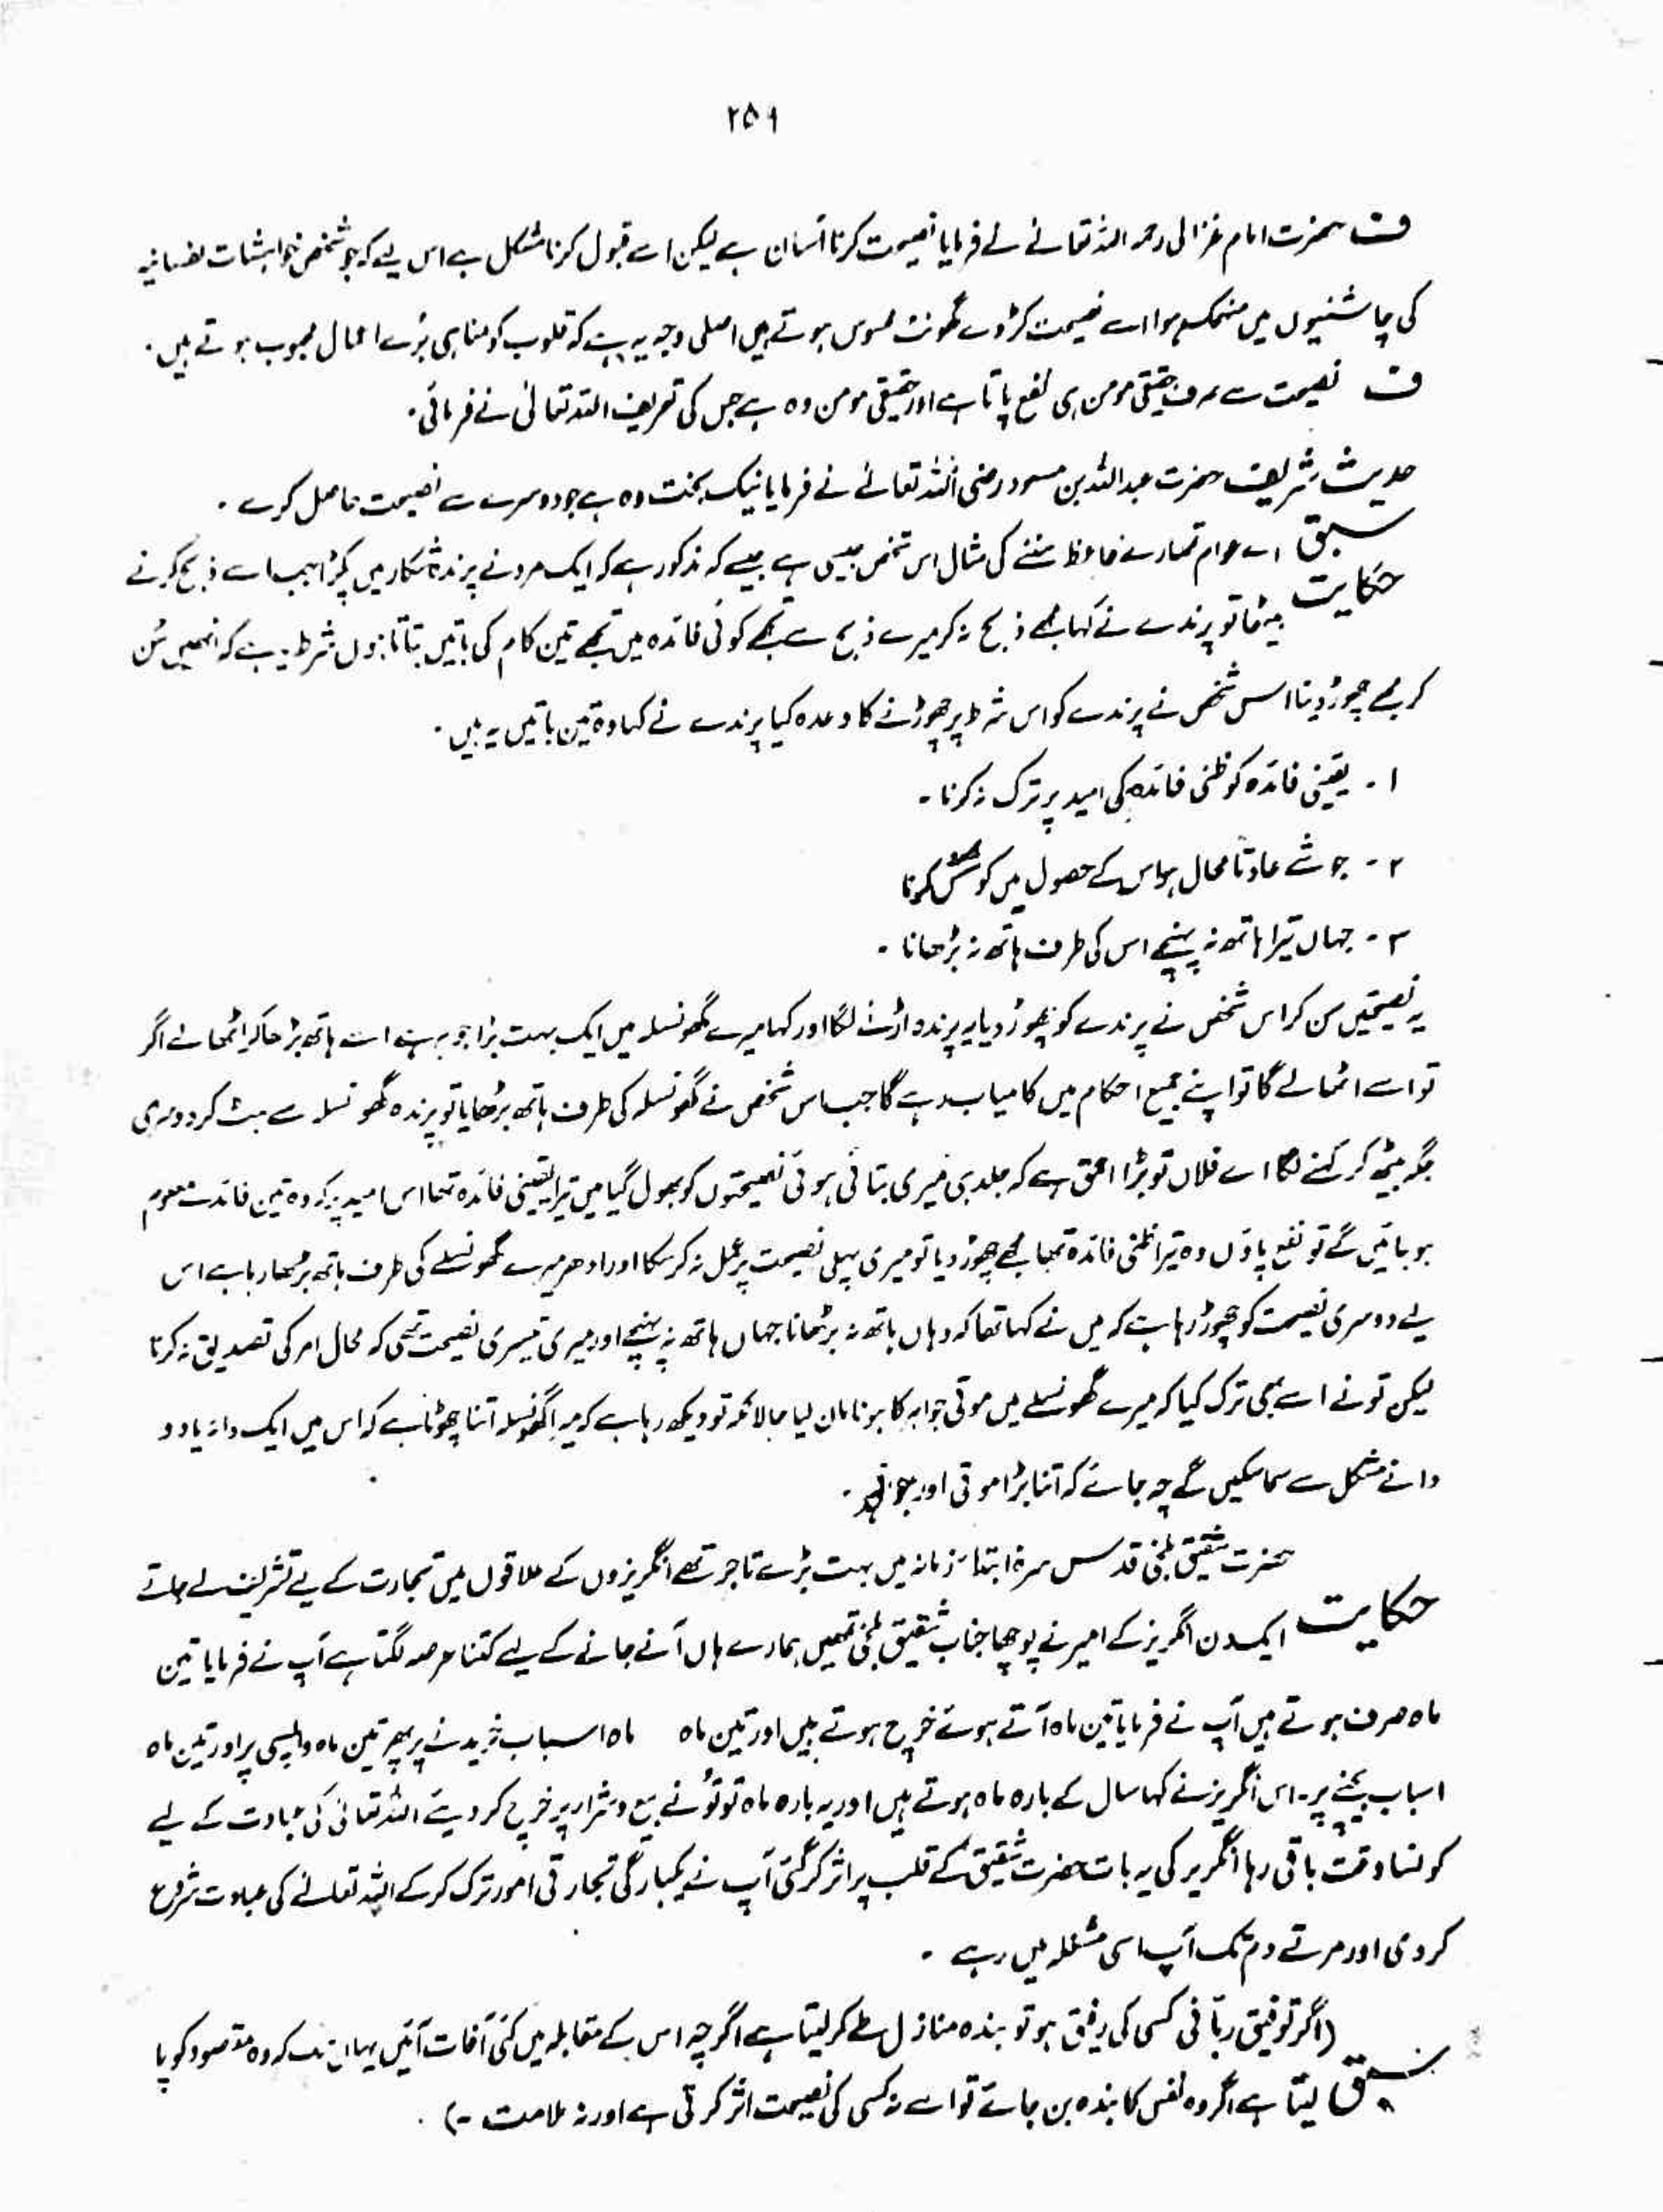 ۲۵۹
ف حضرت امام غزالی رحمہ اللہ تعالےٰ نے فرمایا نصیحت کرنا آسان ہے لیکن اسے قبول کرنا مشکل ہے اس لیے کہ جو شخص خواہشات نفسانیہ
کی چاشنیوں میں منہمک ہوا اسے نصیحت کڑوے گھونٹ محسوس ہوتے ہیں اصلی وجہ یہ ہے کہ قلوب کو مناہی بُرے اعمال محبوب ہوتے ہیں۔
ف نصیحت سے صرف حقیقی مومن ہی نفع پاتا ہے اور حقیقی مومن وہ ہے جس کی تعریف اللہ تعالیٰ نے فرمائی۔
حدیث شریف حضرت عبداللہ بن مسعود رضی اللہ تعالےٰ نے فرمایا نیک بخت وہ ہے جو دوسرے سے نصیحت حاصل کرے۔
سبق اے عوام تمہارے مواعظ سننے کی مثال اس شخص جیسی ہے جیسے کہ مذکور ہے کہ ایک مرد نے پرندہ شکار میں پکڑا جب اسے ذبح کرنے
حکایت بیٹھا تو پرندے نے کہا مجھے ذبح نہ کر میرے ذبح سے تجھے کوئی فائدہ میں تجھے تین کام کی باتیں بتاتا ہوں شرط یہ ہے کہ انھیں سُن
کر مجھے چھوڑ دینا اس شخص نے پرندے کو اس شرط پر چھوڑنے کا وعدہ کیا پرندے نے کہا وہ تین باتیں یہ ہیں۔
۱۔ یقینی فائدہ کو ظنی فائدہ کی امید پر ترک نہ کرنا۔
۲۔ جو شے عادتاً محال ہو اس کے حصول میں کوشش کرنا
۳۔ جہاں تیرا ہاتھ نہ پہنچے اس کی طرف ہاتھ نہ بڑھانا۔
یہ نصیحتیں سن کر اس شخص نے پرندے کو چھوڑ دیا یہ پرندہ اڑنے لگا اور کہا میرے گھونسلہ میں ایک بہت بڑا جوہر ہے اسے ہاتھ بڑھا کر اٹھا لے اگر
تو اسے اٹھا لے گا تو اپنے جمیع احکام میں کامیاب رہے گا جب اس شخص نے گھونسلہ کی طرف ہاتھ بڑھایا تو پرندہ گھونسلہ سے ہٹ کر دوسری
جگہ بیٹھ کر کہنے لگا اے فلاں تو بڑا احمق ہے کہ جلد ہی میری بتائی ہوئی نصیحتوں کو بھول گیا میں تیرا یقینی فائدہ تھا اس امید پر کہ وہ تین فائدے معلوم
ہو جائیں گے تو نفع پاؤں وہ تیرا ظنی فائدہ تھا مجھے چھوڑ دیا تو میری پہلی نصیحت پر عمل نہ کر سکا اور ادھر میرے گھونسلے کی طرف ہاتھ بڑھا رہا ہے اس
لیے دوسری نصیحت کو چھوڑ رہا ہے کہ میں نے کہا تھا کہ وہاں ہاتھ نہ بڑھانا جہاں ہاتھ نہ پہنچے اور میری تیسری نصیحت تھی کہ محال امر کی تصدیق نہ کرنا
لیکن تو نے اسے بھی ترک کیا کہ میرے گھونسلے میں موتی جواہر کا ہونا مان لیا حالانکہ تو دیکھ رہا ہے کہ میرا گھونسلہ اتنا چھوٹا ہے کہ اس میں ایک دانہ یا دو
دانے مشکل سے سما سکیں گے چہ جائے کہ اتنا بڑا موتی اور جوہر۔
حضرت شقیق بلخی قدس سرہٗ ابتداءً زمانہ میں بہت بڑے تاجر تھے انگریزوں کے علاقوں میں تجارت کے لیے تشریف لے جاتے
حکایت ایک دن انگریز کے امیر نے پوچھا جناب شقیق بلخی تمھیں ہمارے ہاں آنے جانے کے لیے کتنا عرصہ لگتا ہے آپ نے فرمایا تین
ماہ صرف ہوتے ہیں آپ نے فرمایا تین ماہ آتے ہوئے خرچ ہوتے ہیں اور تین ماہ ماہ اسباب خریدنے پر پھر تین ماہ واپسی پر اور تین ماہ
اسباب بیچنے پر۔ اس انگریز نے کہا سال کے بارہ ماہ ہوتے ہیں اور یہ بارہ ماہ تو تُو نے بیع و شراء پر خرچ کر دیے اللہ تعالیٰ کی عبادت کے لیے
کونسا وقت باقی رہا انگریز کی یہ بات حضرت شقیق کے قلب پر اثر کر گئی آپ نے یکبارگی تجارتی امور ترک کر کے اللہ تعالےٰ کی عبادت شروع
کر دی اور مرتے دم تک آپ اسی مشغلہ میں رہے۔
(اگر توفیق ربّانی کسی کی رفیق ہو تو بندہ منازل طے کر لیتا ہے اگرچہ اس کے مقابلہ میں کئی آفات آئیں یہاں تک کہ وہ مقصود کو پا
سبق لیتا ہے اگر وہ نفس کا بندہ بن جائے تو اسے نہ کسی کی نصیحت اثر کرتی ہے اور نہ ملامت۔)